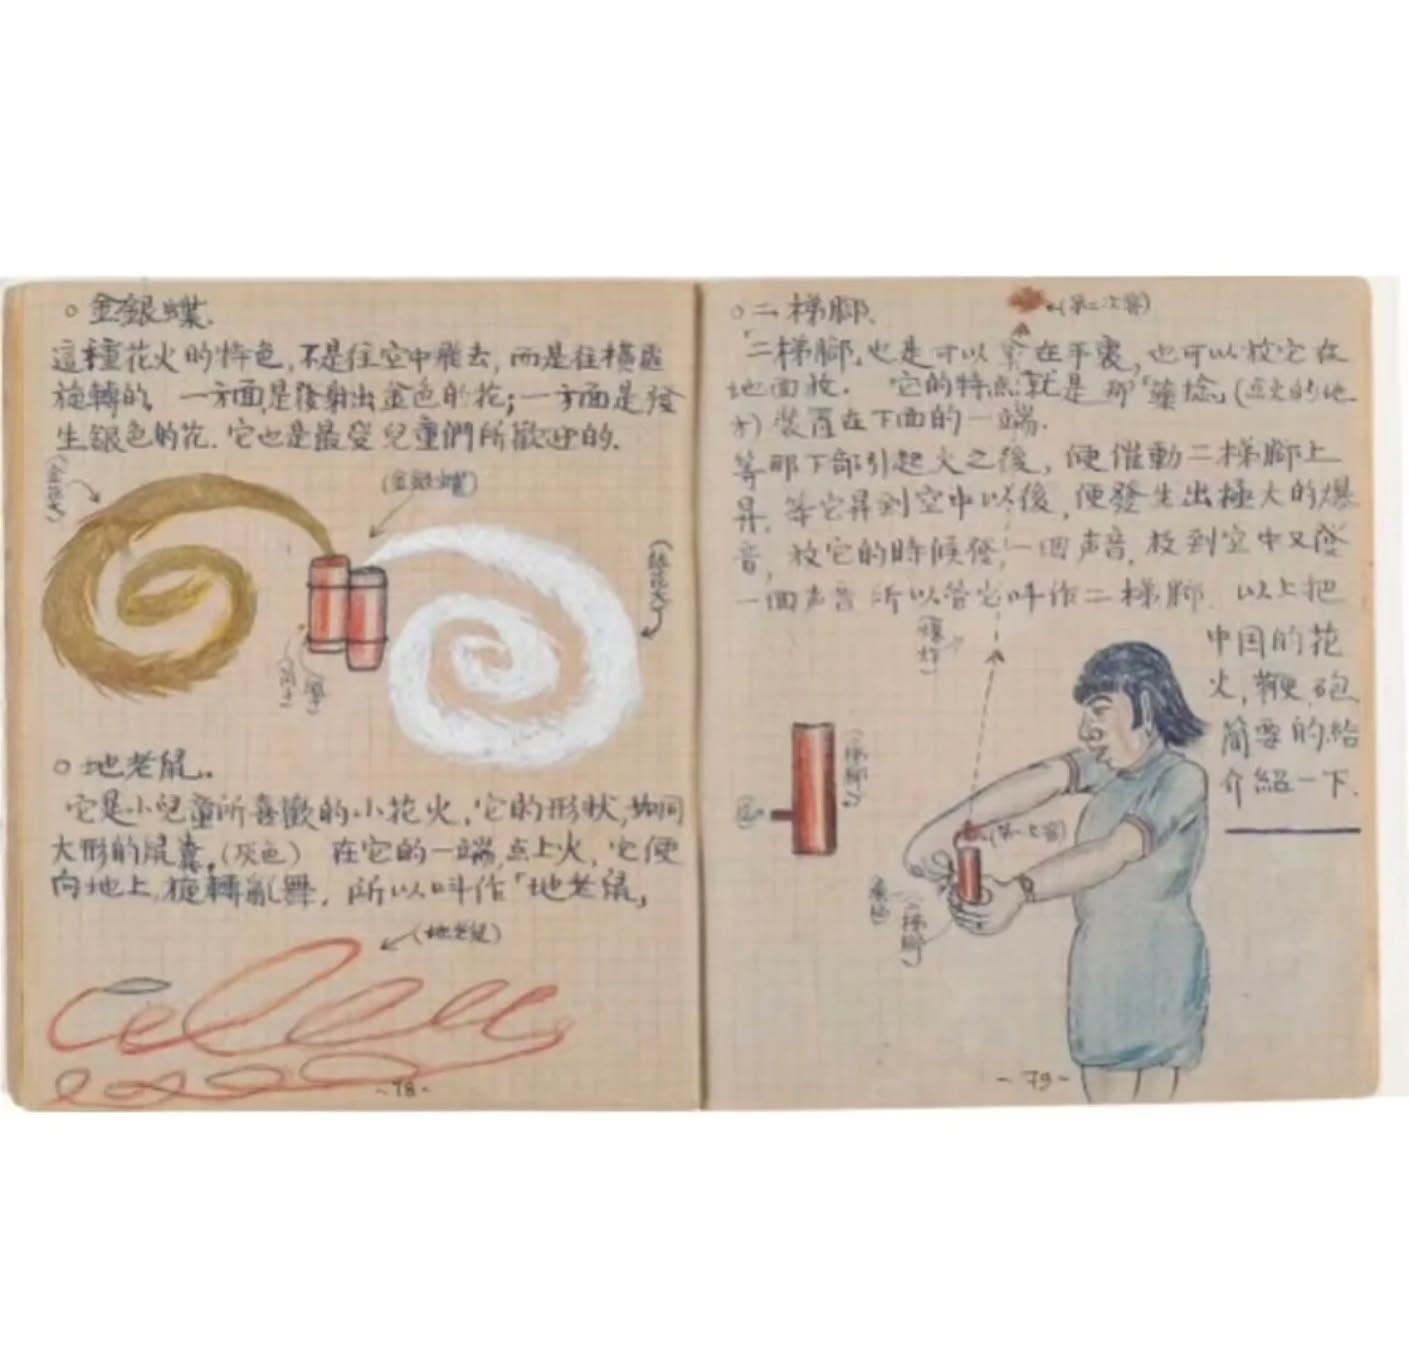 ○ 金銀蝶.
這種花火的特色,不是往空中飛去,而是往橫處
旋轉的。一方面是發射出金色的花;一方面是發
生銀色的花.它也是最受兒童們所歡迎的.
(金花火)
(金銀蝶)
(銀花火)
(筒子)
○ 地老鼠.
它是小兒童所喜歡的小花火,它的形狀,如同
大形的鼠糞,(灰色) 在它的一端,点上火,它便
向地上,旋轉亂舞,所以叫作「地老鼠」
(地老鼠)
-78-
○二梯腳.
(第二次響)
「二梯腳」也是可以拿在手裏,也可以放它在
地面放. 它的特点就是那「藥捻」(点火的地
方)裝置在下面的一端.
等那下部引起火之後,便催動二梯腳上
昇,等它昇到空中以後,便發生出極大的爆
音,放它的時候發一個声音,及到空中又發
一個声音所以管它叫作二梯腳. 以上把
中国的花
火,鞭,砲
簡要的給
介紹一下.
(爆炸)
(二梯腳)
(第一次響)
(二梯腳)
-79-